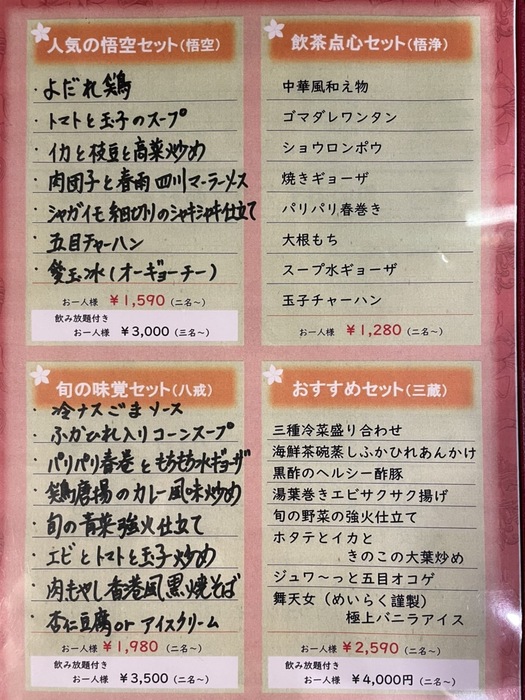 人気の悟空セット(悟空)
・よだれ鶏
・トマトと玉子のスープ
・イカと枝豆と高菜炒め
・肉団子と春雨 四川マーラーソース
・ジャガイモ 細切りのシャキシャキ仕立て
・五目チャーハン
・愛玉氷(オーギョーチー)
お一人様 ¥1,590(二名〜)
飲み放題付き
お一人様 ¥3,000(三名〜)
飲茶点心セット(悟浄)
中華風和え物
ゴマダレワンタン
ショウロンポウ
焼きギョーザ
パリパリ春巻き
大根もち
スープ水ギョーザ
玉子チャーハン
お一人様 ¥1,280(二名〜)
旬の味覚セット(八戒)
・冷ナスごまソース
・ふかひれ入りコーンスープ
・パリパリ春巻ともちもち水ギョーザ
・鶏唐揚のカレー風味炒め
・旬の青菜強火仕立て
・エビとトマトと玉子炒め
・肉もやし香港風黒焼そば
・杏仁豆腐orアイスクリーム
お一人様 ¥1,980(二名〜)
飲み放題付き
お一人様 ¥3,500(二名〜)
おすすめセット(三蔵)
三種冷菜盛り合わせ
海鮮茶碗蒸しふかひれあんかけ
黒酢のヘルシー酢豚
湯葉巻きエビサクサク揚げ
旬の野菜の強火仕立て
ホタテとイカと
きのこの大葉炒め
ジュワ〜っと五目オコゲ
舞天女(めいらく謹製)
極上バニラアイス
お一人様 ¥2,590(二名〜)
飲み放題付き
お一人様 ¥4,000円(二名〜)